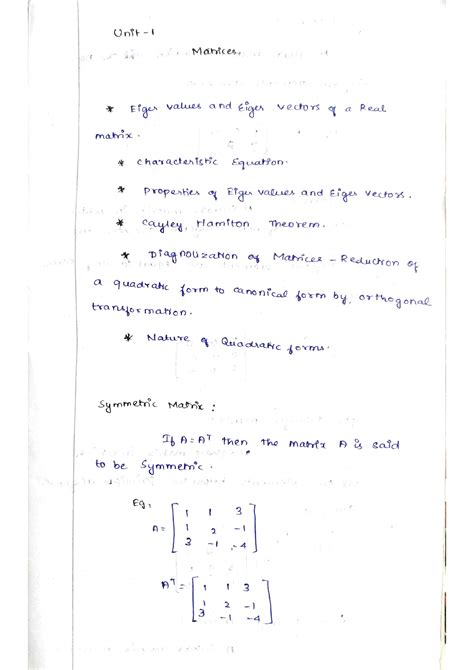 Unit - 1
Matrices.
* Eigen values and Eigen vectors of a Real
matrix.
* characteristic Equation.
* properties of Eigen values and Eigen vectors.
* Cayley, Hamiton Theorem.
* Diagnolization of Matrices - Reduction of
a quadratic form to canonical form by, orthogonal
transformation.
* Nature of Quadratic forms.
Symmetric Matrix :
If A = Aᵀ then the matrix A is said
to be Symmetric.
Eg:
A = [ 1 1 3
1 2 -1
3 -1 -4 ]
Aᵀ = [ 1 1 3
1 2 -1
3 -1 -4 ]